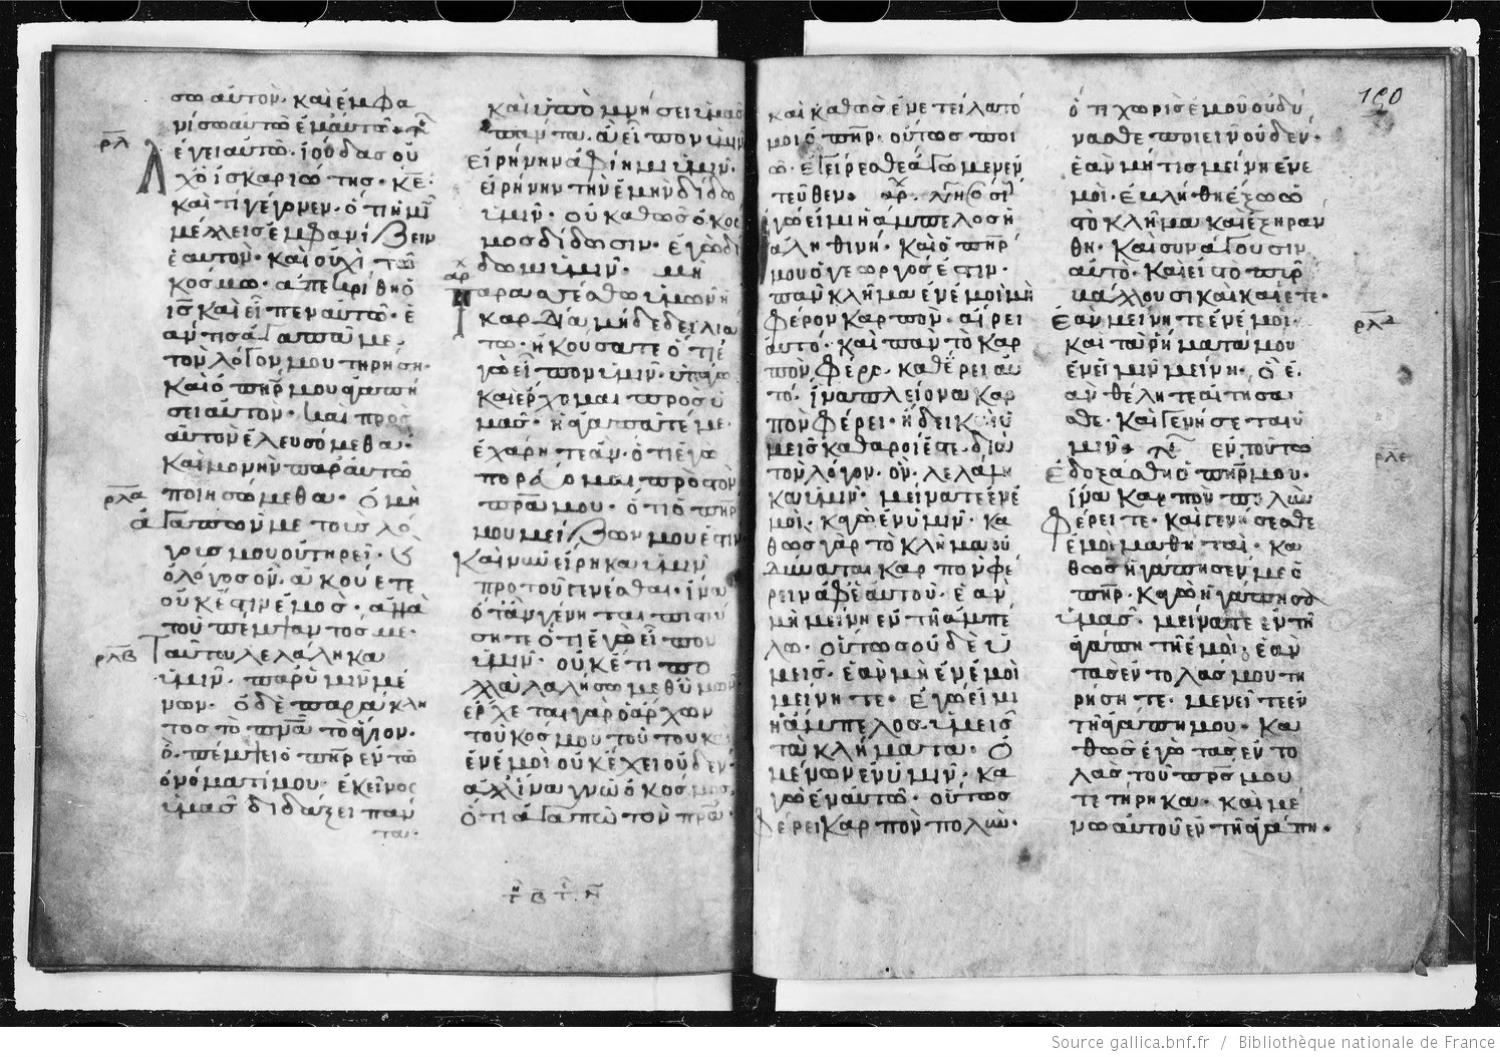 σω αὐτόν· καὶ ἐμφα
νίσω αὐτῶ ἐμαυτῶ·
ρλ
Λέγει αὐτῶ· ἰούδας οὐ
χ ὁ ἰσκαριώτης· κε·
καὶ τί γέγονεν· ὅτι ἡμῖ
μέλλεις ἐμφανίζειν
ἑαυτὸν· καὶ οὐχὶ τῶ
κόσμω· ἀπεκρίθη ὁ
ις καὶ εἶπεν αὐτῶ· ἐ
άν τις ἀγαπᾶ με
τὸν λόγον μου τηρήσει·
καὶ ὁ πηρ μου ἀγαπή
σει αὐτόν· καὶ προς
αὐτὸν ἐλευσόμεθα·
καὶ μονὴν παρ αὐτῶ
ρλα
ποιήσωμεθα· ὁ μὴ
ἀγαπῶν με τοὺς λό
γους μου οὐ τηρεῖ·
ὁ λόγος ὃν ἀκούετε
οὐκ ἔστιν ἐμὸς· ἀλλὰ
τοῦ πέμψαντός με·
ρλβ
Ταῦτα λελάληκα
ὑμῖν· παρ ὑμῖν μέ
νων· ὁ δὲ παράκλη
τος τὸ πνα τὸ ἅγιον·
ὃ πέμψει ὁ πηρ ἐν τῶ
ὀνόματί μου· ἐκεῖνος
ὑμᾶς διδάξει πάν
τα·
καὶ ὑπομνήσει ὑμᾶς
πάντα ἃ εἶπον ὑμῖν
εἰρήνην ἀφίημι ὑμῖν·
εἰρήνην τὴν ἐμὴν δίδω
ὑμῖν· οὐ καθὼς ὁ κος
μος δίδωσιν· ἐγὼ δί
δωμι ὑμῖν· μὴ
αρ
ταρασσέσθω ὑμῶν ἡ
καρδία μηδὲ δειλιά
τω· ἠκούσατε ὅτι ἐ
γὼ εἶπον ὑμῖν· ὑπάγω
καὶ ἔρχομαι πρὸς ὑ
μᾶς· ἠγαπᾶτέ με·
ἐχάρητε ἄν· ὅτι ἐγὼ
πορεύομαι πρὸς τὸν
πρα μου· ὅτι ὁ πηρ
μου μείζων μου ἐστιν
Καὶ νῦν εἴρηκα ὑμῖν
πρὸ τοῦ γενέσθαι· ἵνα
ὅταν γένηται πιστεύ
σητε ὅτι ἐγὼ εἶπον
ὑμῖν· οὐκέτι πο
λλὰ λαλήσω μεθ ὑμῶν
ἔρχεται γὰρ ὁ ἄρχων
τοῦ κόσμου τούτου κ
ἐν ἐμοὶ οὐκ ἔχει οὐδεν·
ἀλλ ἵνα γνῶ ὁ κόσμος
ὅτι ἀγαπῶ τὸν πρα·
160
καὶ καθὼς ἐνετείλατό
μοι ὁ πηρ· οὕτως ποι
ῶ· ἐγείρεσθε ἄγωμεν ἐν
τεῦθεν·
γώ εἰμι ἡ ἄμπελος ἡ
ἀληθινή· καὶ ὁ πηρ
μου ὁ γεωργός ἐστιν·
πᾶν κλῆμα ἐν ἐμοὶ μὴ
φέρον καρπον· αἴρει
αὐτό· καὶ πᾶν τὸ καρ
πὸν φέρο καθαίρει αὐ
τό· ἵνα πλείονα καρ
πὸν φέρει· ἤδει καὶ ὑ
μεῖς καθαροί ἐστε διὰ
τὸν λόγον· ὃν λελάλη
κα ὑμῖν· μείνατε ἐν ἐ
μοὶ· καγὼ ἐν ὑμῖν· κα
θὼς γὰρ τὸ κλῆμα οὐ
δύναται καρπὸν φέ
ρειν ἀφ ἑαυτοῦ· ἐὰν
μὴ μείνη ἐν τῆ ἀμπέ
λω· οὕτως οὐδὲ ὑ
μεῖς· ἐὰν μὴ ἐν ἐμοὶ
μείνητε· Ἐγώ εἰμι
ἡ ἄμπελος· ὑμεῖς
τὰ κλήματα· ὁ
μένων ἐν ὑμῖν· κα
γὼ ἐν αὐτῶ· οὕτως
φέρει καρπὸν πολὺν·
ὅτι χωρὶς ἐμοῦ οὐ δύ
νασθε ποιεῖν οὐδέν·
ἐὰν μή τις μείνη ἐν ἐ
μοί· ἐμλήθη ἔξω ὡς
τὸ κλῆμα καὶ ἐξηραν
θη· καὶ συνάγουσιν
αὐτὸ· καὶ εἰς τὸ πῦρ
βάλλουσι καὶ καίετε·
ρλδ
Ἐὰν μείνητε ἐν ἐμοὶ·
καὶ τὰ ῥήματά μου
ἐν εἱμῖν μείνη· ὃ ἐ
ὰν θέλητε αἰτήσα
σθε· καὶ γενήσεται ὑ
μῖν· ἐν τούτω
ρλε
ἐδοξάσθη ὁ πηρ μου·
ἵνα καρπὸν πολὺν
φέρειτε· καὶ γενήσεσθε
ἐμοὶ μαθηταὶ· κα
θὼς ἠγάπησέν με ὁ
πηρ· καγὼ ἠγάπησα
ὑμᾶς· μείνατε ἐν τῆ
ἀγάπη τῆ ἐμοὶ· ἐὰν
τὰς ἐντολάς μου τη
ρήσητε· μενεῖτε ἐν
τῆ ἀγάπη μου· κα
θὼς ἐγὼ τὰς ἐντο
λὰς τοῦ πρς μου
τετήρηκα· καὶ μέ
νω αὐτοῦ ἐν τῆ ἀγάπη·
Source gallica.bnf.fr / Bibliothèque nationale de France